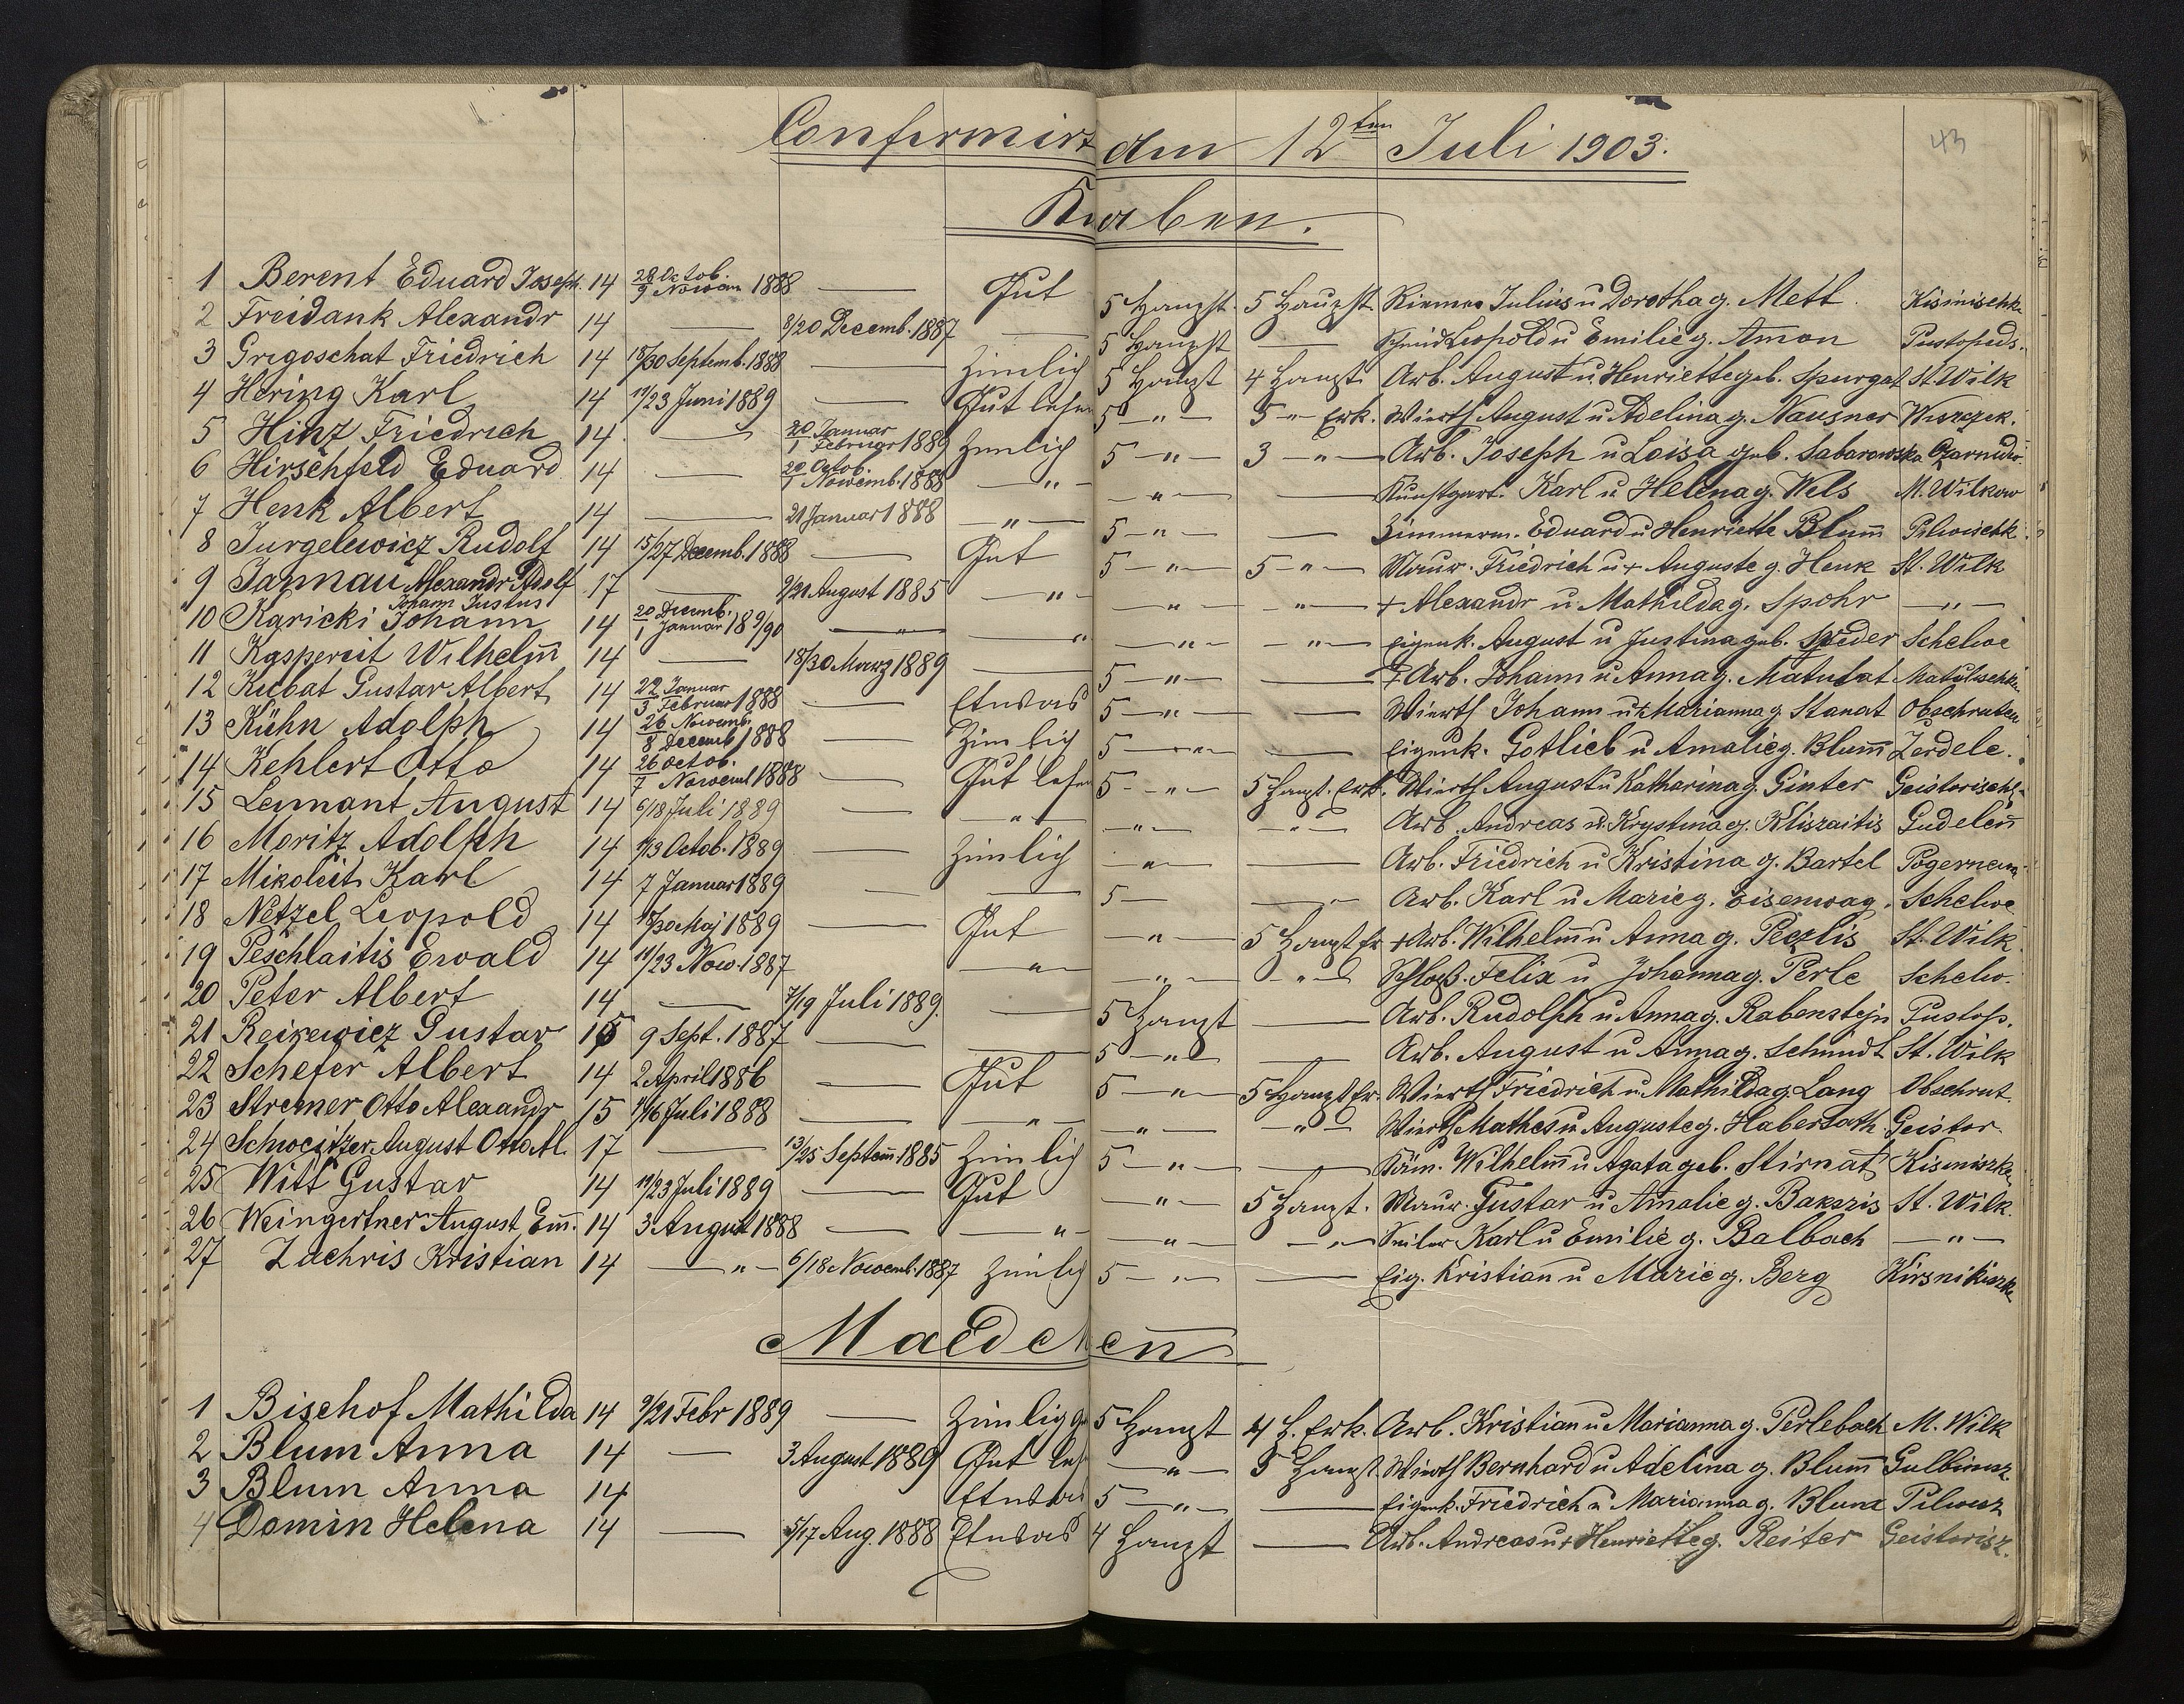 43
Confirmirt den 12ten Juli 1903.
Knaben.
1 Berent Eduard Joseph 14 28 Octob. / 9 Novem 1888 — Gut 5 Haupst. 5 Haupst. Riemer Julius u Dorotha g. Mett Kisinischk
2 Freidank Alexandr 14 — 8/20 Decemb. 1887 — 5 Haupst — Schmid Leopold u Emilie g. Amon Pustopeds.
3 Grigoschat Friedrich 14 18/30 Septemb. 1888 — Zimlich 5 Haupt 4 Haupt. Arb. August u. Henriette geb. Spurgat St. Wilk
4 Hering Karl 14 11/23 Juni 1889 — Gut lesen 5 — " — 5 — " Erk. Wierth August u Adelina g. Nausner Wisrczek.
5 Hinz Friedrich 14 — 20 Januar / 1 Februar 1889 Zimlich 5 — " — 3 — " — Arb. Joseph u Loisa geb. Sabarowska
6 Hirschfeld Eduard 14 — 20 Octob. / 1 Novemb. 1888 — " — — " — — Kunstgart. Karl u Helena g. Wels M. Wilkow
7 Henk Albert 14 — 21 Januar 1888 — " — 5 — " — — Zimmerm. Eduard u Henriette Blum̄ Pilwischk
8 Jurgelewicz Rudolf 14 15/27 Decemb. 1888 — Gut 5 — " — 5 — " — Maur. Friedrich u + Auguste g. Henk St. Wilk
9 Jannau Alexandr Adolf 17 — 9/21 August 1885 — " — — " — — " — + Alexandr u Mathilda g. Spohr — " —
Johann Justus
10 Karicki Johann 14 20 Decemb. / 1 Januar 18 9/90 — " — — " — " — — " — Eigenk. August u Justina geb. Schelwe
11 Kaspereit Wilhelm̄ 14 — 18/30 Marz 1889 — 5 — " — — + Arb. Johann u Anna g. Matutat Matulischken
12 Kubat Gustav Albert 14 22 Januar / 3 Februar 1888 — Etwas 5 — " — — Wierth Johann u + Marianna g Stanat Obschruten
13 Kühn Adolph 14 26 Novemb. / 8 Decemb 1888 — Zimlich 5 — " — — Eigenk. Gotlieb u Amalie g. Blum̄ Zerdele.
14 Kehlert Otto 14 26 Octob. / 7 Novemb 1888 — Gut lesen 5 — " — 5 Haupt. Erk. Wierth August u Katharina g. Ginter Geistorischk
15 Lennant August 14 6/18 Juli 1889 — — " — — " — — " — Arb. Andreas u. Krystina g. Kliszaitis Gudelen̄
16 Moritz Adolph 14 1/13 Octob. 1889 — Zimlich — " — — Arb. Friedrich u Kristina g. Bartel Pogernem
17 Mikoleit Karl 14 7 Januar 1889 — — 5 — — " — Arb. Karl u Marie g. Eisenwag. Schelwe
18 Netzel Leopold 14 18/30 Maj 1889 — Gut — " — 5 Haupt Er + Arb. Wilhelm̄ u Anna g. Peczlis St. Wilk
19 Peschlaitis Ewald 14 11/23 Now. 1887 — " — — " — — " — Schloß. Felix u Johanna g. Perle Schelw.
20 Peter Albert 14 — 7/19 Juli 1889. — 5 Haupt — Arb. Rudolph u Anna g. Rabenstejn Pustop.
21 Reikewicz Gustav 15 9 Sept. 1887 — — 5 — " — — Arb. August u Anna g. Schmidt St. Wilk
22 Schefer Albert 14 2 April 1886 — Gut 5 — " — 5 Haupt Er. Wierth Friedrich u Mathilda g. Lang Obschrut.
23 Stremer Otto Alexandr 15 4/16 Juli 1888 — — " — — " — — " — Wierth Mathes u Auguste g. Habersath Geistor.
24 Schweitzer August Otto Al. 17 — 13/25 Septem̄. 1885 Zimlich 5 — " — — Wilhelm̄ u Agata geb. Stirnat Kisiniszke
25 Witt Gustav 14 11/23 Juli 1889 — Gut — " — 5 Haupt. Maur. Gustav u Amalie g. Bakszis St. Wilk.
26 Weingertner August Em̄. 14 3 August 1888 — — " — — " — — " — Seiler Karl u Emilie g. Balbach — " —
27 Zachris Kristian 14 — " — 6/18 Novemb. 1887 Zimlich 5 — " — — Eig. Kristian u Marie g. Berg Kirsnikiszk
Maedchen
1 Bischof Mathilda 14 9/21 Febr 1889 — Zimlig g 5 Haupt 4 H. Erk. Arb. Kristian u Marianna g. Perlebach M. Wilk
2 Blum Anna 14 — 3 August 1889 Gut les — " — 5 Haupt. Wierth Bernhard u Adelina g. Blum̄ Gulbinisz
3 Blum Anna 14 Etwas 5 — " — — Eigenk. Friedrich u Marianna g. Blum Pilwisz
4 Domin Helena 14 — 5/17 Aug. 1888 Etwas 4 Haupt — Arb. Andreas u + Henriette g. Reiter Geistorisz.